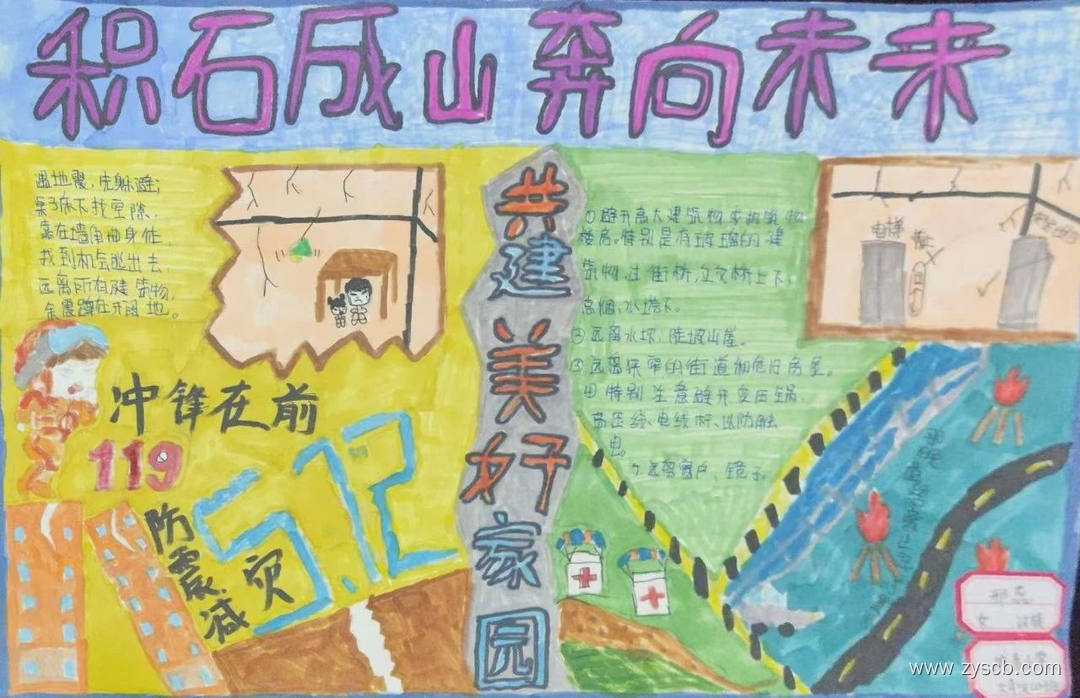 积石成山奔向未来
遇地震,先躲避;
桌子床下找空隙,
靠在墙角曲身体,
找到机会逃出去,
远离所有建筑物,
余震蹲在开阔地。
冲锋在前
119
5.12
防震减灾
共建美好家园
①避开高大建筑物
楼房,特别是有玻璃的建
筑物,过街桥,立交桥上下,
高烟,水塔下。
②远离水坝,陡坡山崖。
③远离狭窄的街道和危旧房屋。
特别注意避开变压锅
高压线、电线杆、以防触
电。
远离窗户、镜子。
电梯
女
www.zyscb.com